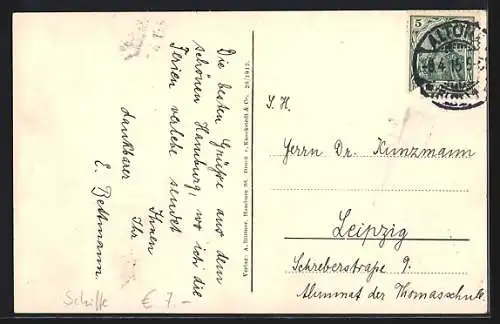 Die besten Grüße aus dem
schönen Hamburg, wo ich die
Ferien verlebe sendet
Ihnen
Ihr
dankbarer
E. Bettmann
Verlag: A. Büttner, Hamburg 26. Druck v. Knackstedt & Co. 26/1912.
5
ALTONA
S. H.
Herrn Dr. Kunzmann
Leipzig
Schreberstraße 9.
Alumnat der Thomasschule.
Schiffe € 7.-